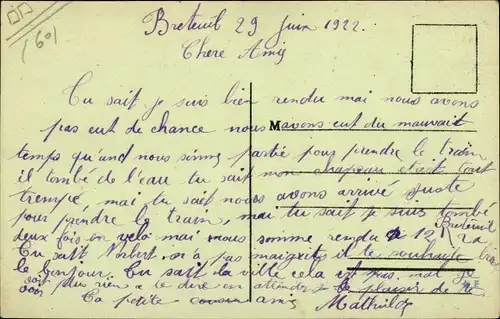 (601
Breteuil 29 juin 1922.
Chere Amis
Tu sait je suis bien rendu mai nous avons
pas eut de chance nous M avons eut du mauvait
temps qu'and nous sinne partie pour prendre le train
il tombé de l'eau tu sait mon chapeau etait tout
trempé, mai tu sait nous avons arrivé juste
pour prendre le train, mai tu sait je suis tombé
deux fois en velo mai nous somme rendu a 12
Breteuil
Tu sait Norbert on a pas maigrit il te souhaite
le bonjour. Tu sait la ville cela et pas mal je
soit plus rien a te dire en attendre le plaisir de te
voir
Ta petite amis Mathilde